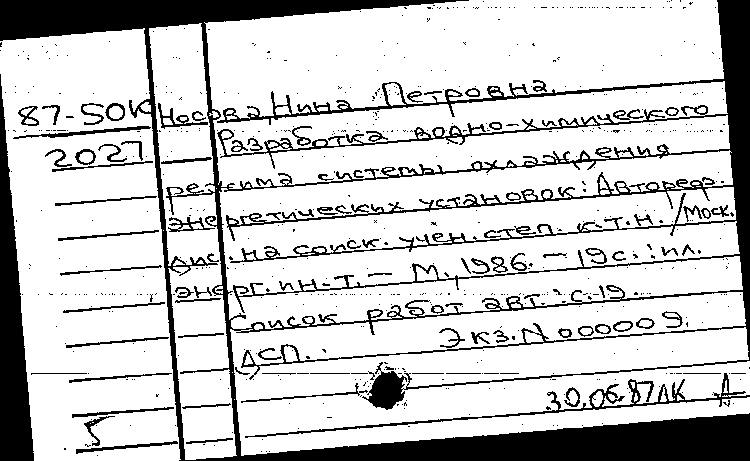 87-50К Носова, Нина Петровна.
2027 Разработка водно-химического
режима системы охлаждения
энергетических установок: Автореф.
дис. на соиск. учён. степ. к.т.н. /Моск.
энерг. ин-т. — М., 1986. — 19с.: ил.
Список работ авт.: с.19.
ДСП. Экз.N 000009.
30.06.87ЛК А
5